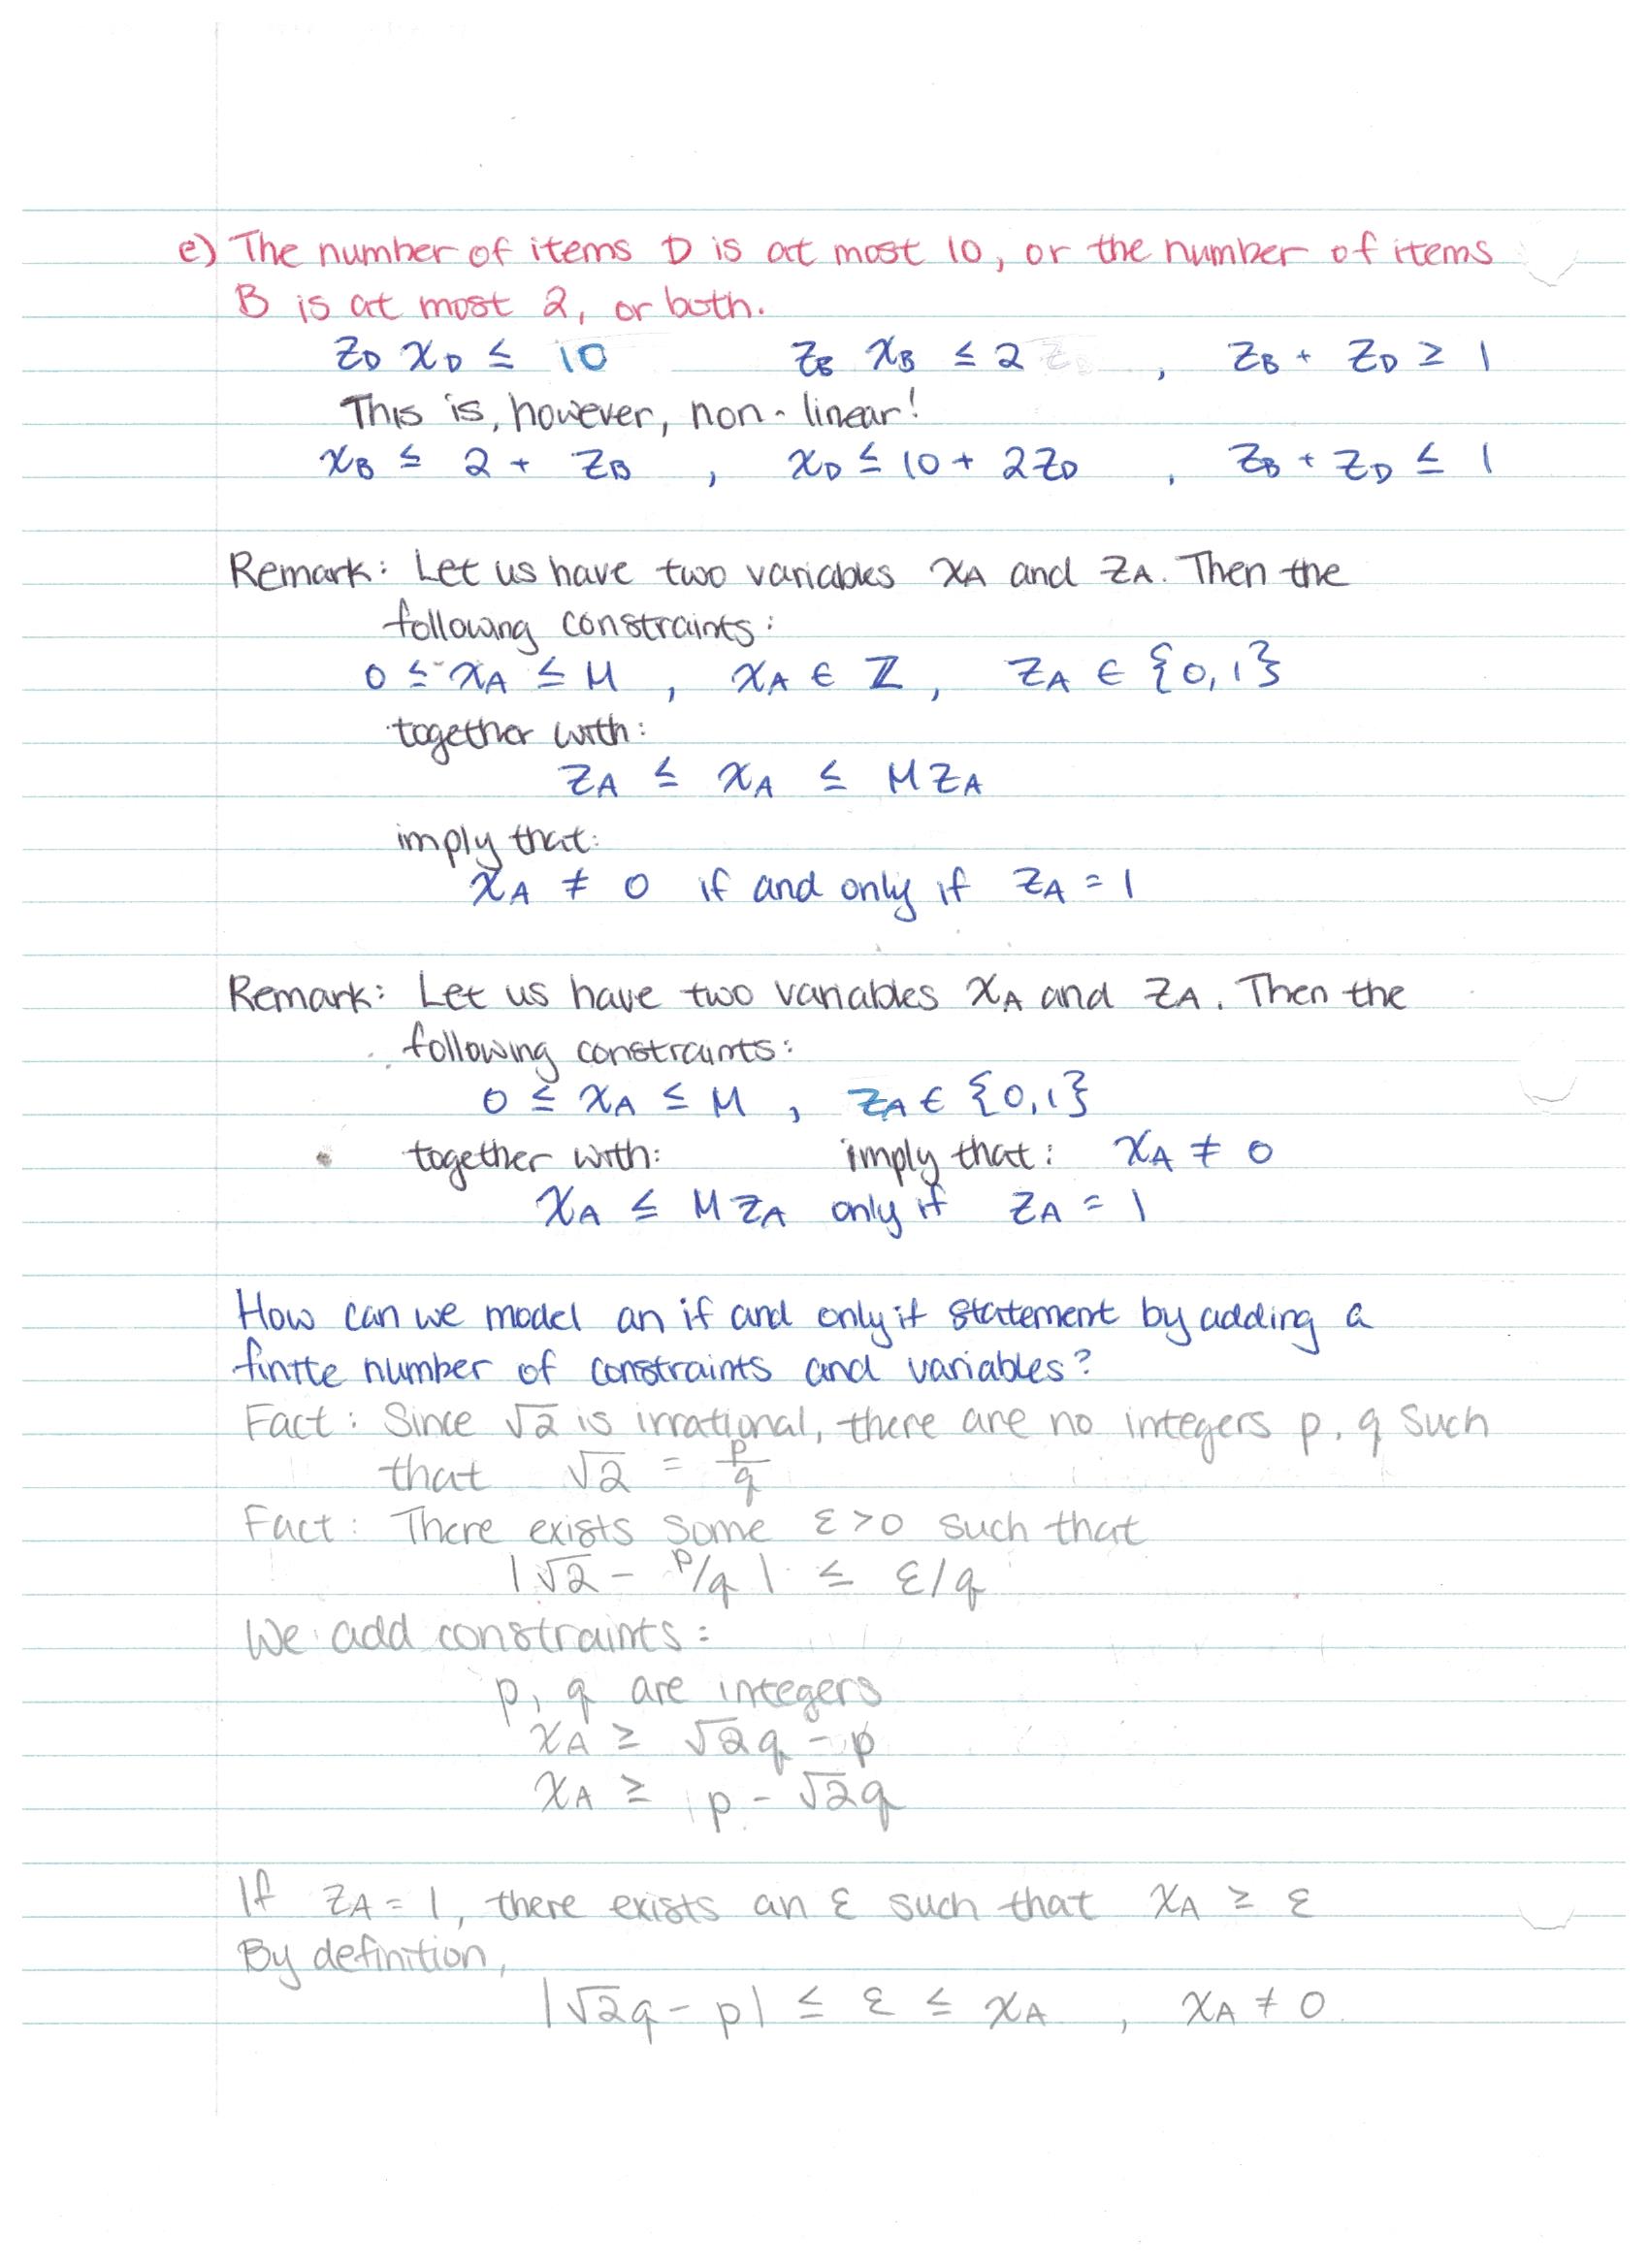 e) The number of items D is at most 10, or the number of items
B is at most 2, or both.
z_D x_D ≤ 10 z_B x_B ≤ 2 , z_B + z_D ≥ 1
This is, however, non-linear!
x_B ≤ 2 + z_B , x_D ≤ 10 + 2z_D , z_B + z_D ≤ 1
Remark: Let us have two variables x_A and z_A. Then the
following constraints:
0 ≤ x_A ≤ M , x_A ∈ ℤ, z_A ∈ {0,1}
together with:
z_A ≤ x_A ≤ M z_A
imply that:
x_A ≠ 0 if and only if z_A = 1
Remark: Let us have two variables x_A and z_A. Then the
following constraints:
0 ≤ x_A ≤ M , z_A ∈ {0,1}
together with: imply that: x_A ≠ 0
x_A ≤ M z_A only if z_A = 1
How can we model an if and only if statement by adding a
finite number of constraints and variables?
Fact: Since √2 is irrational, there are no integers p, q such
that √2 = p/q
Fact: There exists some ε>0 such that
|√2 - p/q| ≤ ε/q
We add constraints:
p, q are integers
x_A ≥ √2q - p
x_A ≥ p - √2q
If z_A = 1, there exists an ε such that x_A ≥ ε
By definition,
|√2q - p| ≤ ε ≤ x_A , x_A ≠ 0.